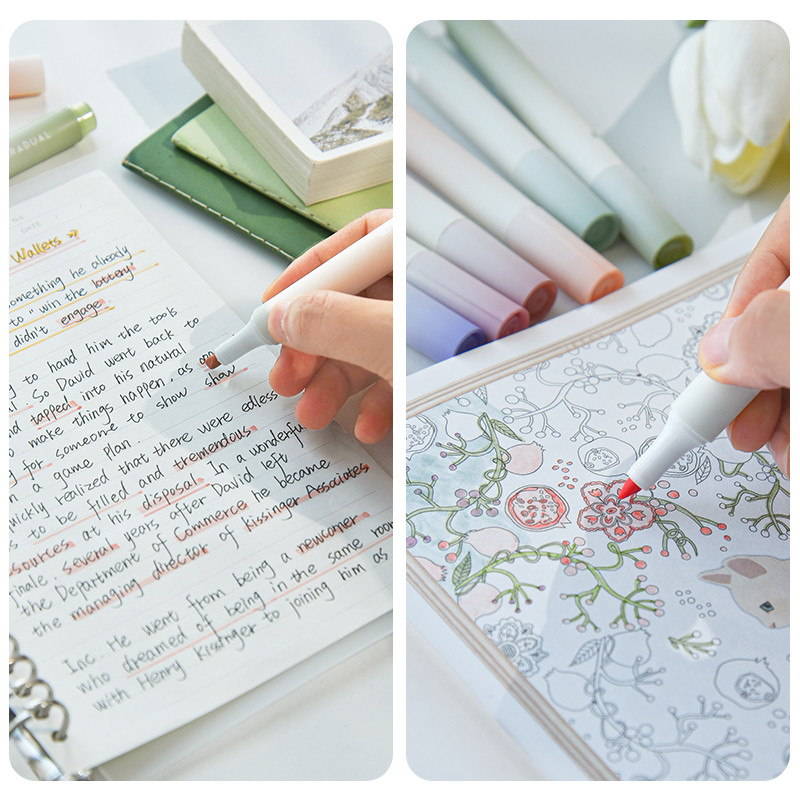 GRADUAL
No
DATE
Wallets
omething he already
to "win the lottery"
didn't engage
g to hand him the tools
! So David went back to
nd tapped into his natural
o make things happen, as opp
n for someone to show show
h a game plan.
uickly realized that there were edless
s to be filled and tremendous
sources at his disposal. In a wonderfu
inale, several years after David left
the Department of Commerce he became
the managing director of kissinger Associates
Inc. He went from being a newcomer
who dreamed of being in the same room
with Henry Kissinger to joining him as